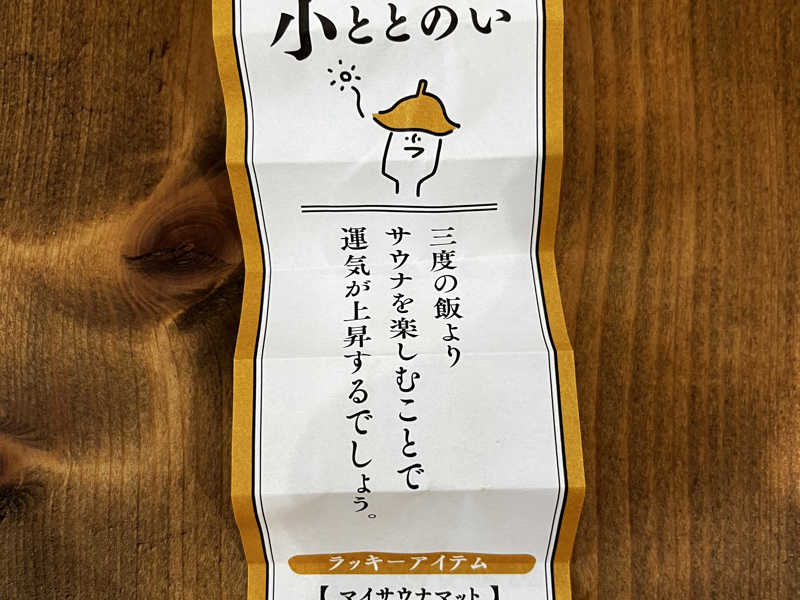 小ととのい
三度の飯より
サウナを楽しむことで
運気が上昇するでしょう。
ラッキーアイテム
【マイサウナマット】